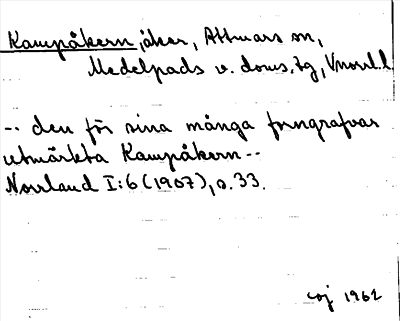 Kampåkern, åker, Attmars sn,
Medelpads v. doms. tg, Vnorrl. l
-- den för sina många forngrafvar
utmärkta Kampåkern --
Norrland I:6 (1907), s. 33.
1962